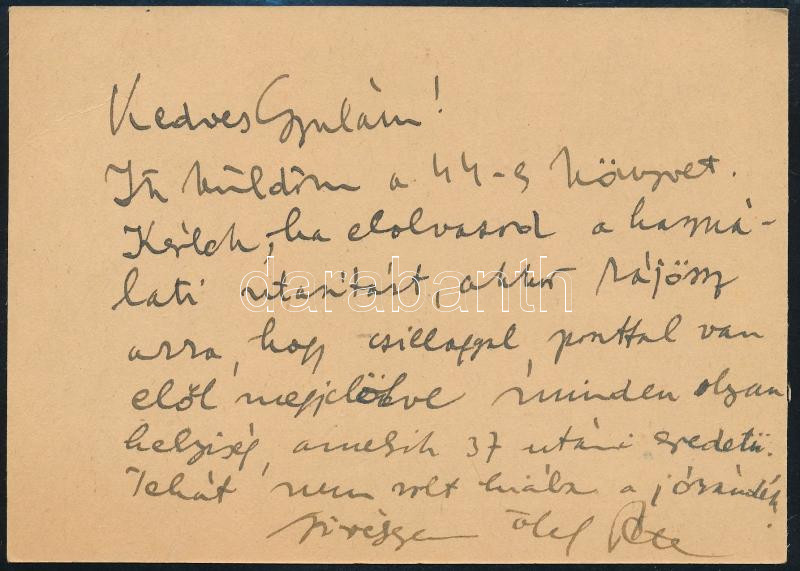 Kedves Gyulám!
Itt küldöm a 44-s könyvet.
Kérlek, ha elolvasod a haszná-
lati utasítást, akkor rájössz
arra, hogy csillaggal, ponttal van
elől megjelölve minden olyan
helyiség, amelyik 37 utáni eredetü.
Tehát nem volt hiába a jószándék.
ölel
darabanth